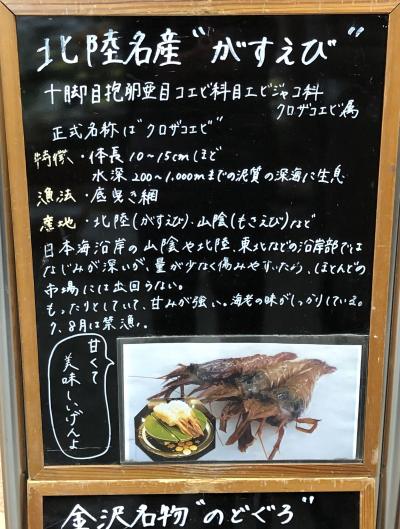 北陸名産“がすえび”
十脚目抱卵亜目コエビ科目エビジャコ科
クロザコエビ属
正式名称は“クロザコエビ”
特徴・体長10〜15cmほど
水深200〜1,000mまでの泥質の深海に生息
漁法・底曳き網
産地・北陸(がすえび)・山陰(もさえび)など
日本海沿岸の山陰や北陸、東北などの沿岸部では
なじみが深いが、量が少なく傷みやすいため、ほとんどの
市場には出回らない。
もったりとしていて、甘みが強い。海老の味がしっかりしている。
7、8月は禁漁。
甘くて
美味しいげんよ
金沢名物“のどぐろ”